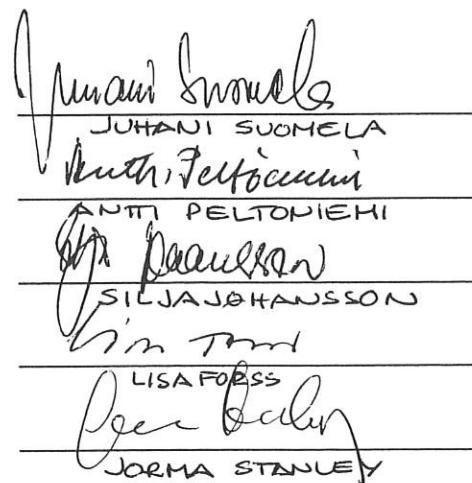 Juhani Suomela
JUHANI SUOMELA
Antti Peltoniemi
ANTTI PELTONIEMI
JOHANSSON
SILJA JOHANSSON
LISA FORSS
JORMA STANLEY